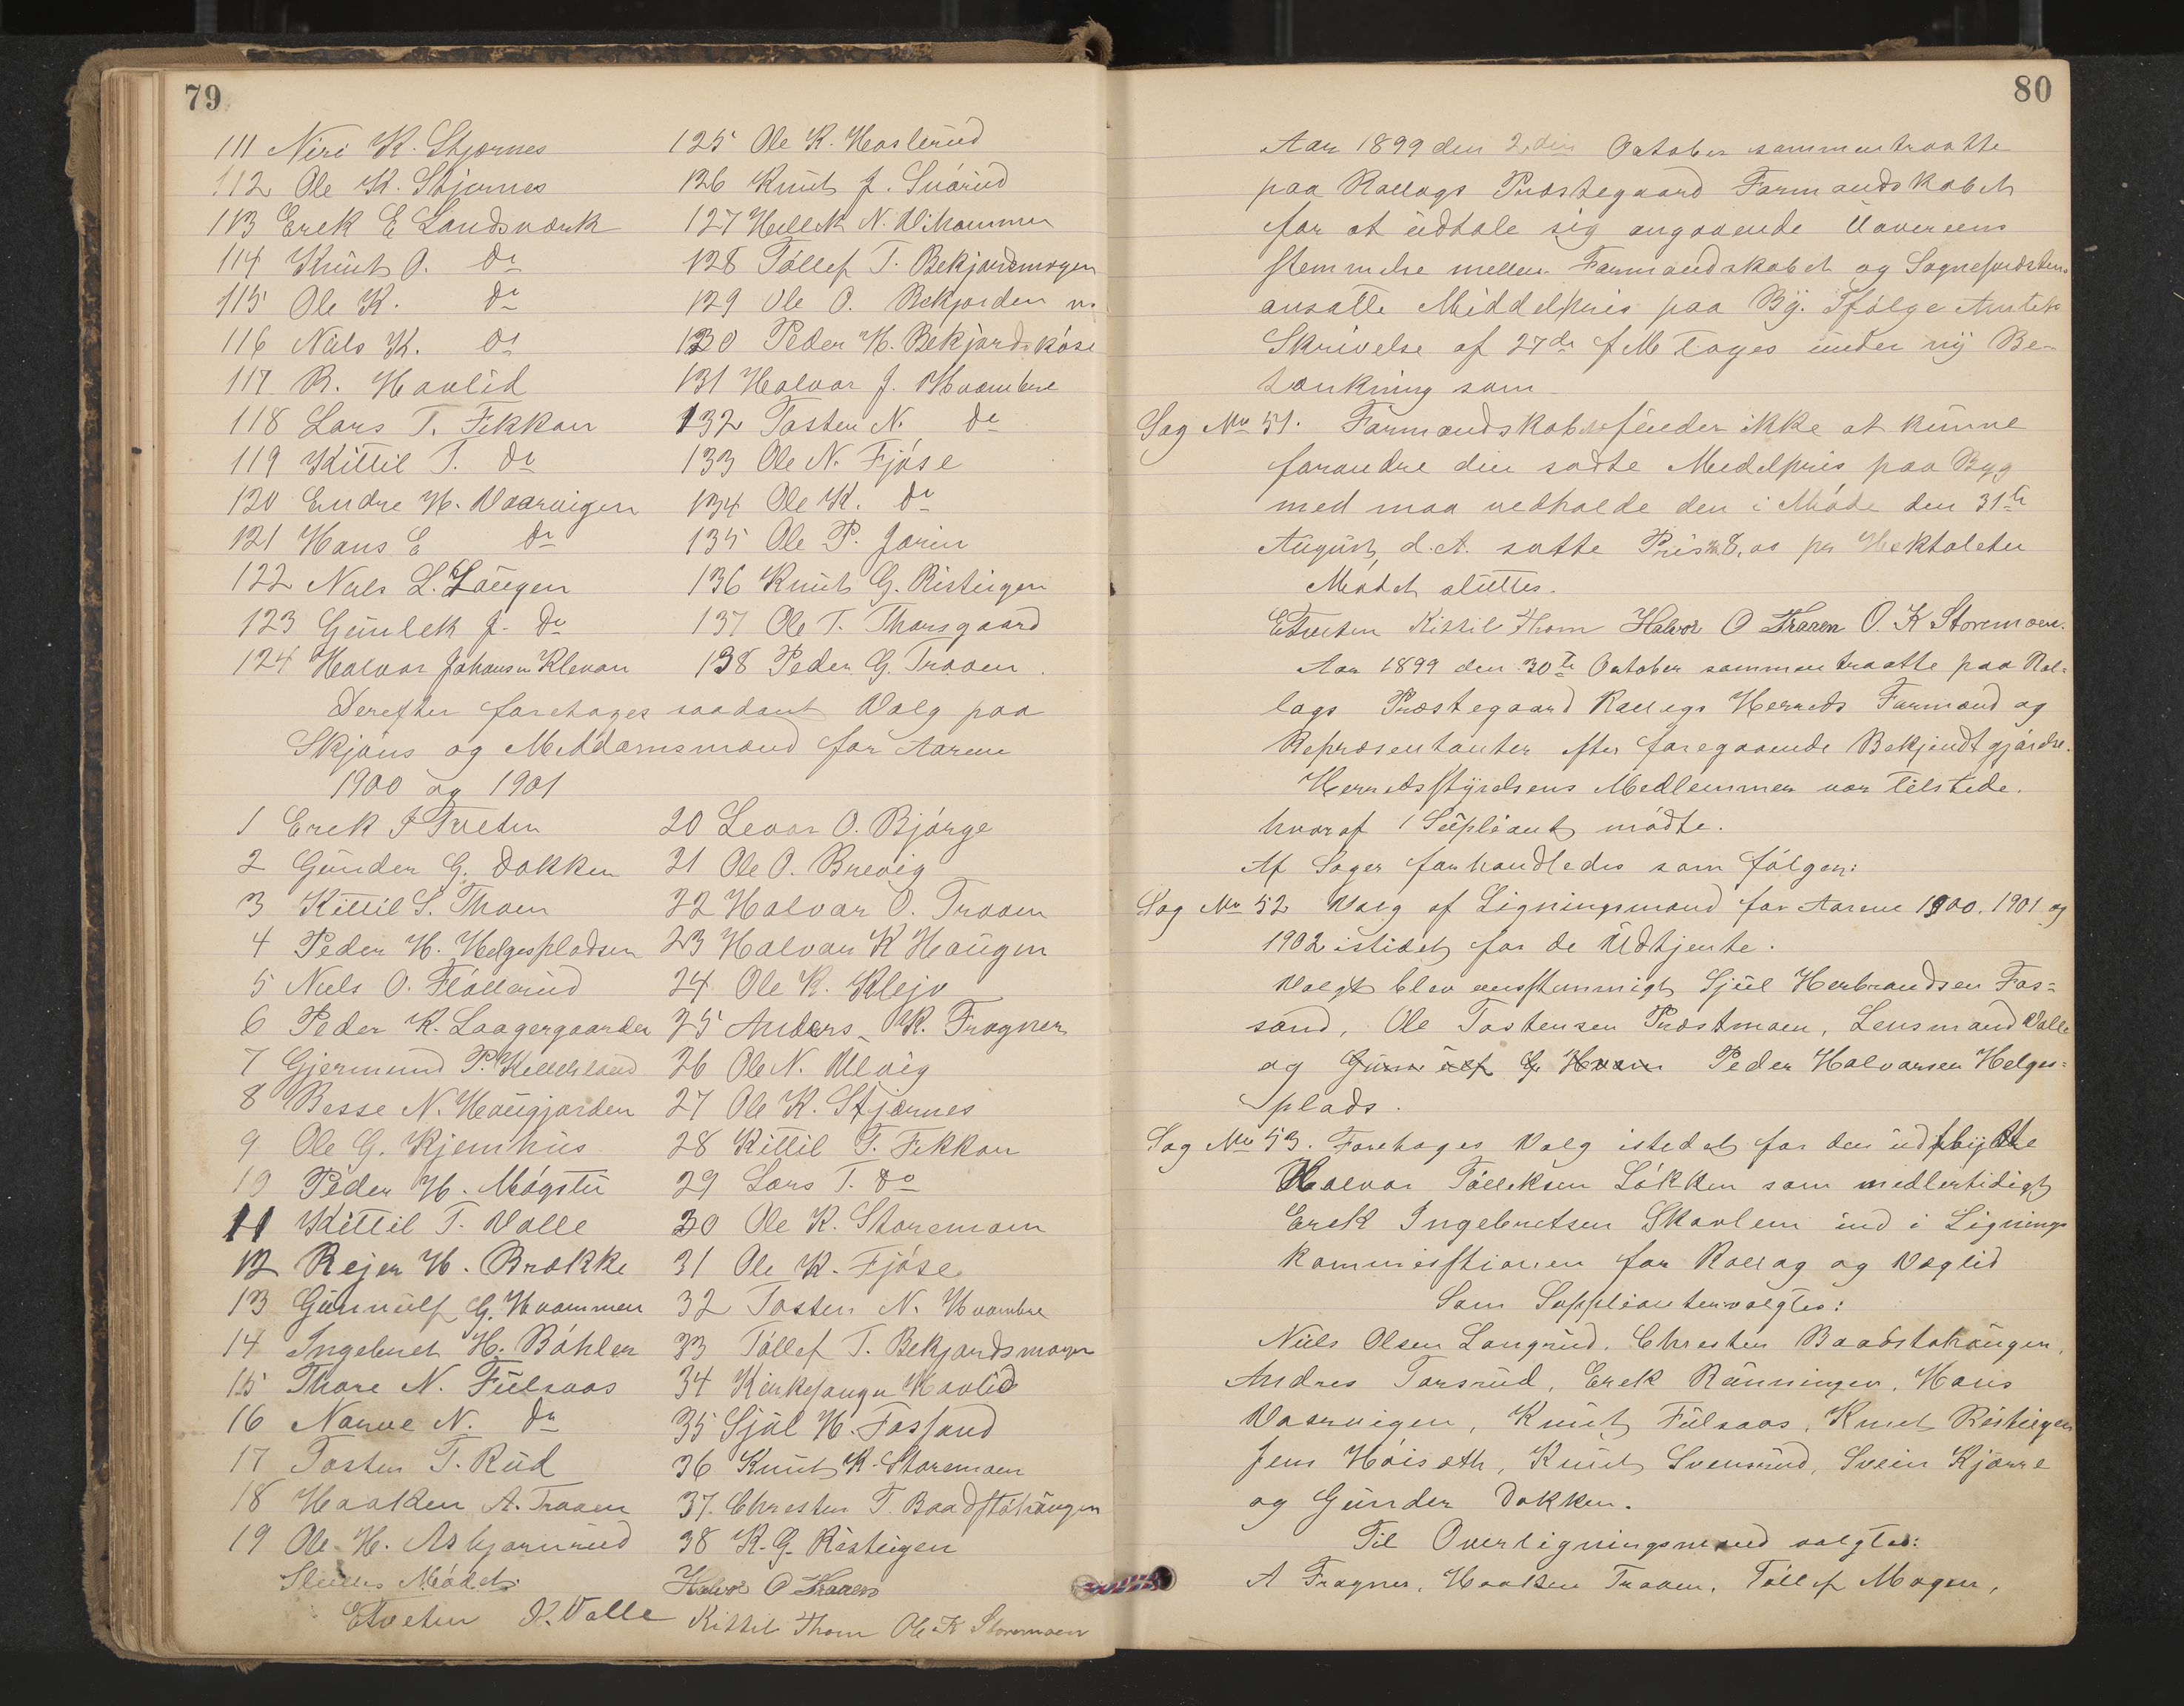 79
111 Niri K. Stjærnes
112 Ole K. Stjærnes
113 Erek E Landsværk
114 Knut O. do
115 Ole K. do
116 Niels K. do
117 R. Havlid
118 Lars T. Fekkan
119 Kittil T. do
120 Endre H. Vaarvigen
121 Hans E do
122 Niels L. Haugen
123 Gunlek J. do
124 Halvor Johansen Klevan
125 Ole K. Haslerud
126 Knut J. Snarud
127 Hellek N. Vihammer
128 Tollef T. Bekjordsmogen
129 Ole O. Bekjorden
130 Peder H. Bekjords
131 Halvor J. Hvambre
132 Tosten N. do
133 Ole N. Fjøse
134 Ole K. do
135 Ole P. Jorin
136 Knut G. Risteigen
137 Ole T. Thorsgaard
138 Peder G. Traaen
Derefter foretages saadant Valg paa
Skjøns og Meddomsmænd for Aarene
1900 og 1901
1 Erek I Tveten
2 Gunder G. Dokken
3 Kittil S. Thoen
4 Peder H. Helgespladsen
5 Niels O. Fløllerud
6 Peder K. Laagergaarden
7 Gjermund P.
8 Besse N. Haugjorden
9 Ole G. Kjemhus
10 Peder H. Møgstu
11 Kittil T. Valle
12 Rejer H. Brække
13 Gunnulf G. Hvammen
14 Ingebret H. Bøhler
15 Thore N. Fulsaas
16 Narve N. do
17 Tosten T. Rud
18 Haaken A. Traaen
19 Ole H. Asbjørnrud
20 Levor O. Bjørge
21 Ole O. Brevig
22 Halvor O. Traaen
23 Halvor K Haugen
24 Ole K. Klejv
25 Anders K. Fragner
26 Ole N. Ulvig
27 Ole K. Stjærnes
28 Kittil T. Fekkan
29 Lars T. do
30 Ole K. Storemoen
31 Ole K. Fjøse
32 Tosten N. Hvambre
33 Tollef T. Bekjordsmogen
34 Kirkesanger Havlid
35 Sjul H. Fossand
36 Knut K. Storemoen
37. Chresten T. Baadstøhaugen
38 K. G. Risteigen
Sluttes Mødet.
Halvor O Traaen
ETveten K. Valle Kittil Thoen Ole K Storemoen
80
Aar 1899 den 2den October sammentraatte
paa Rollags Præstegaard Formandskabet
for at udtale sig angaaende Uovereens
stemmelse mellem Formandskabet og Sognepræstens
ansatte Middelpris paa Byg. Ifølge Amtets
Skrivelse af 27de f M toges under ny Be-
tænkning som
Sag No 51. Formandskabet finder ikke at kunne
forandre den sadte Medelpris paa Byg
med maa vedholde den i Møde den 31te
August d.A. satte Pris 8,00 pr Hektoleter
Mødet sluttes.
ETveten Kittil Thoen Halvor O Traaen O. K Storemoen.
Aar 1899 den 30te October sammentraatte paa Rol=
lags Præstegaard Rollags Herreds Formænd og
Repræsentanter efter foregaaende Bekjendtgjørelse.
Herredsstyrelsens Medlemmer var tilstede.
hvoraf 1 Supleant mødte.
Af Sager forhandledes som følger:
Sag No 52 Valg af Ligningsmænd for Aarene 1900. 1901 og
1902 istedet for de Udtjente.
Valgt blev eensstemmigt Sjul Herbrandsen Fos=
sand, Ole Tostensen Præstmoen, Lensmand Valle
og Gunnulf G Hvam Peder Halvorsen Helges=
plads.
Sag No 53. Foretages Valg istedet for den udflyttte
Halvor Tolleksen Løkken som medlertidigt
Erek Ingebretsen Skavlem ind i Lignings
kommisstionen for Rollag og Væglid
Som Suppleanter valgtes:
Niels Olsen Langrud, Chresten Baadstøhaugen,
Andres Tørsrud, Erek Rønningen, Hans
Vaarvigen, Knut Fulsaas, Knut Risteigen
Jens Høisæth, Knut Svensrud, Svein Kjørre
og Gunder Dokken.
Til Overligningsmænd valgtes:
A Fragner, Haaken Traaen, Tollef Mogen,